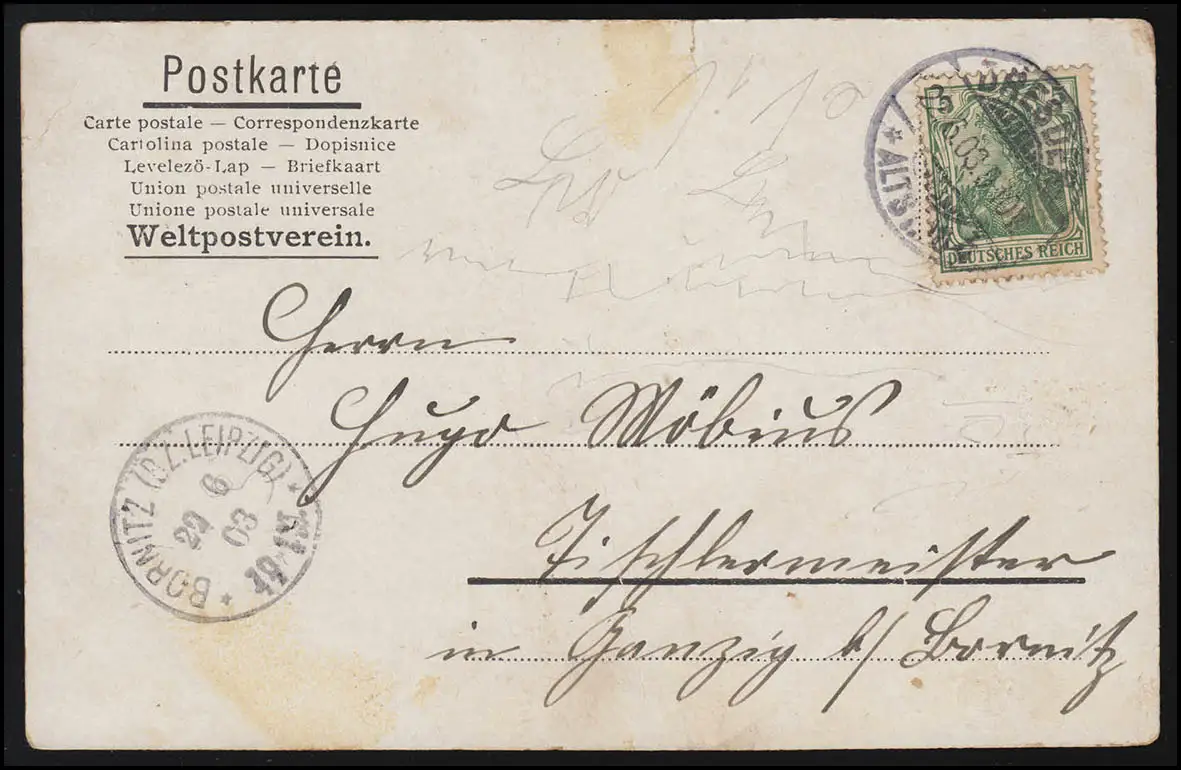 Postkarte
Carte postale — Correspondenzkarte
Cartolina postale — Dopisnice
Levelező-Lap — Briefkaart
Union postale universelle
Unione postale universale
Weltpostverein.
DRESDEN
* ALTST.
6.03.
DEUTSCHES REICH
Herrn
Hugo Möbius
Tischlermeister
in Ganzig b/ Bornitz
BORNITZ (BZ. LEIPZIG) *
22
6
03